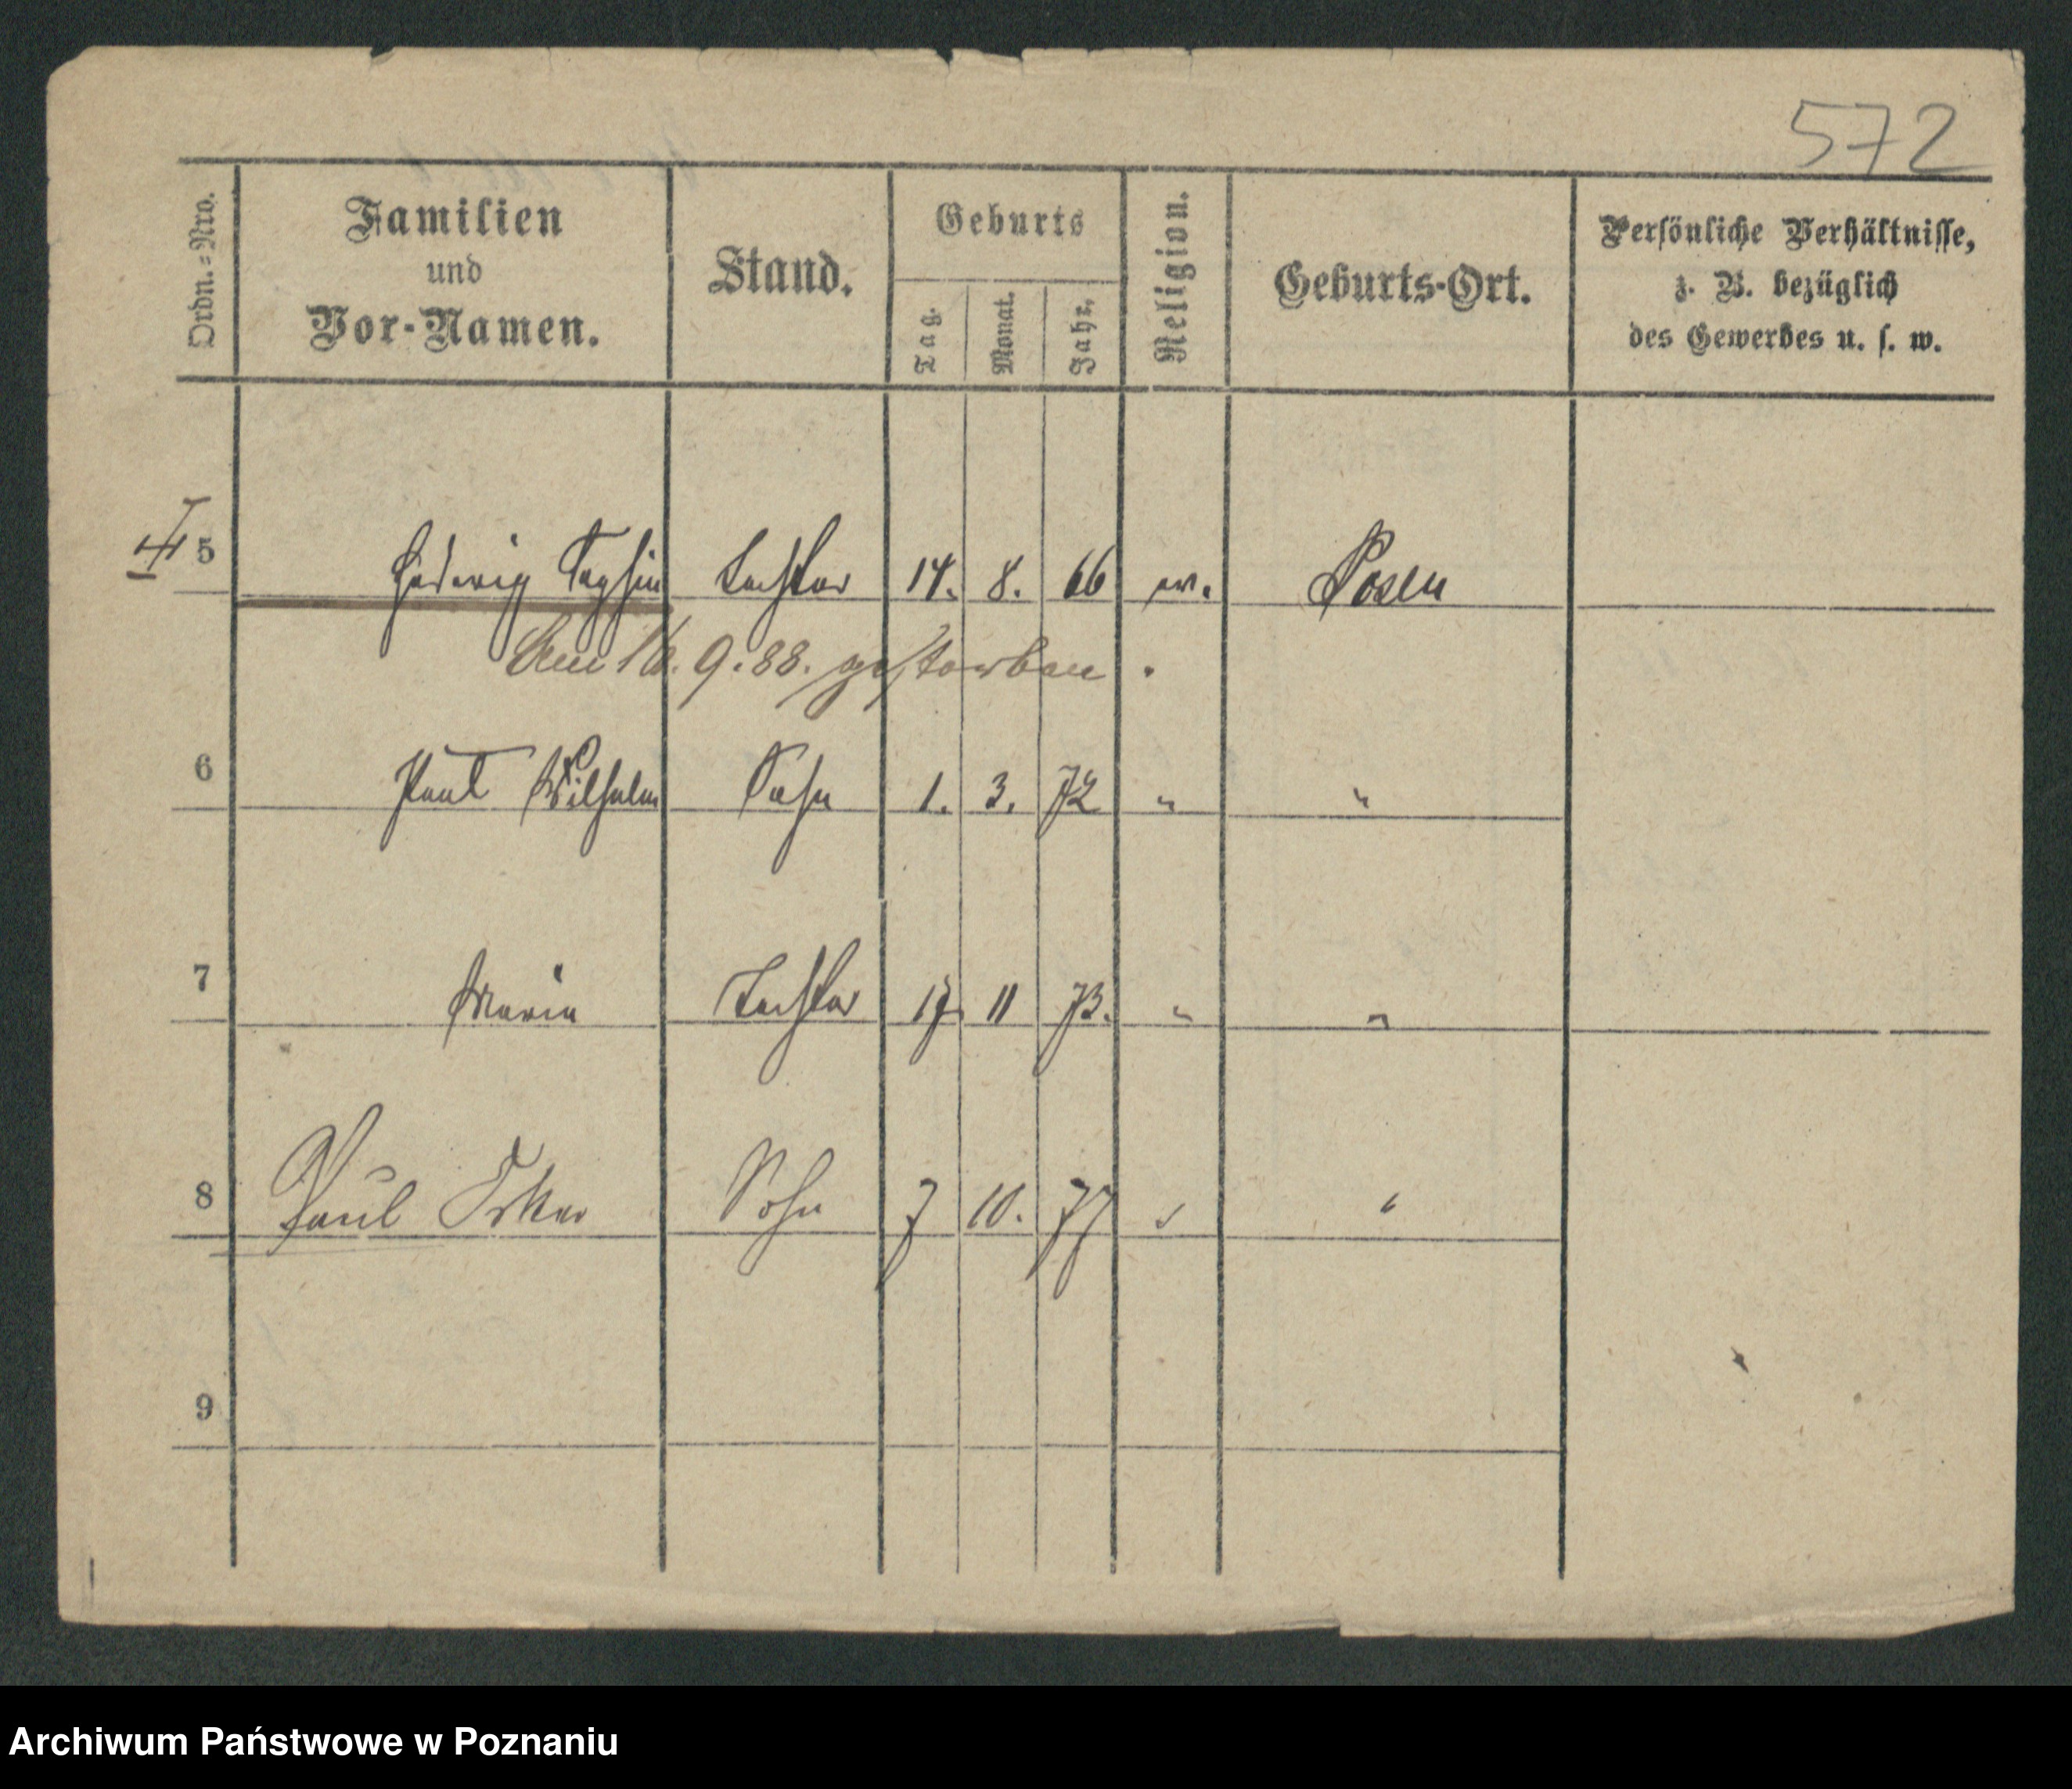 572
Ordn.-Nro.
Familien
und
Vor-Namen.
Stand.
Geburts
Tag.
Monat.
Jahr.
Religion.
Geburts-Ort.
Persönliche Verhältnisse,
z. B. bezüglich
des Gewerbes u. s. w.
5 Hedwig Sophie Tochter 14. 8. 66 ev. Posen
Am 16. 9. 88. gestorben.
6 Paul Wilhelm Sohn 1. 3. 72 " "
7 Maria Tochter 17. 11 73. " "
8 Paul Sohn 7 10. 77 " "
9
Archiwum Państwowe w Poznaniu